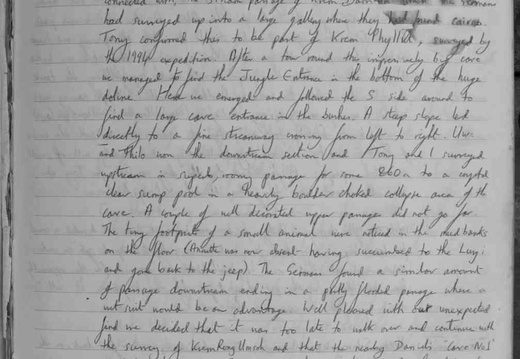 connected with the stream passage of Krem
had surveyed up into a large gallery where they had found cairns.
Tony confirmed this to be part of Krem Phyllut, surveyed by
the 1994 expedition. After a tour round this impressively big cave
we managed to find the Jungle Entrance in the bottom of the huge
doline. Here we emerged and followed the S side around to
find a large cave entrance in the bushes. A steep slope led
directly to a fine streamway coming from left to right. Uwe
and Thilo won the downstream section and Tony and I surveyed
upstream in superb, roomy passage for some 800m to a crystal
clear sump pool in a heavily boulder choked collapse area of the
cave. A couple of well decorated upper passages did not go far.
The tiny footprint of a small animal were noticed in the mud banks
on the floor (Annette was now absent having succumbed to the
and gone back to the jeep). The Germans found a similar amount
of passage downstream ending in a partly flooded passage where a
wet suit would be an advantage. Well pleased with our unexpected
find we decided that it was too late to walk over and continue with
the survey of Krem and that the nearby Daniels 'Cave No5'